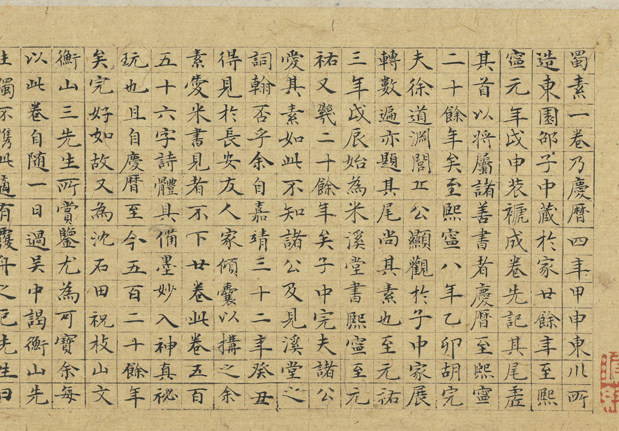 蜀素一卷乃慶曆四年甲申東川所
造東園邵子中藏於家廿餘年至熙
寧元年戊申裝褫成卷先記其尾虛
其首以將屬諸善書者慶曆至熙寧
二十餘年矣至熙寧八年乙卯胡完
夫徐道淵閭丘公顯觀於子中家展
轉數遍亦題其尾尚其素也至元祐
三年戊辰始為米溪堂書熙寧至元
祐又幾二十餘年矣子中完夫諸公
愛其素如此不知諸公及見溪堂之
詞翰否乎余自嘉靖三十二年癸丑
得見於長安友人家傾囊以搆之余
素愛米書見者不下廿卷此卷五百
五十六字詩體具備墨妙入神真祕
玩也且自慶曆至今五百二十餘年
矣完好如故又為沈石田祝枝山文
衡山三先生所賞鑒尤為可寶余每
以此卷自隨一日過吳中謁衡山先
生獨不攜此適有覆舟之厄先生曰